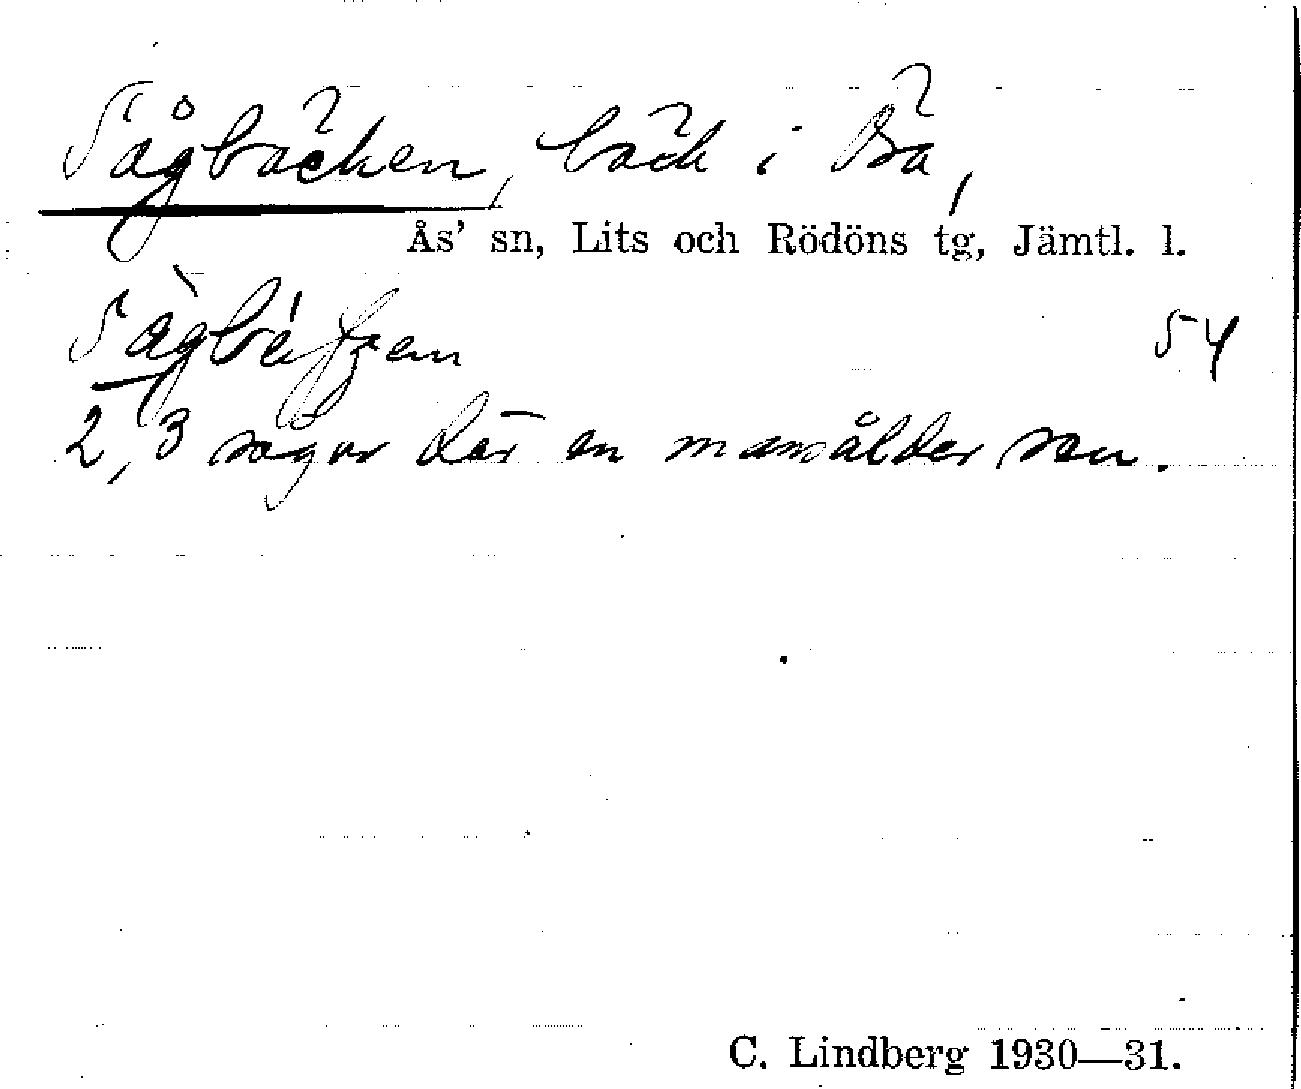 Sågbäcken, bäck i Bä,
Ås' sn, Lits och Rödöns tg, Jämtl. l.
54
2, 3 sågar där en mansålder sen.
C. Lindberg 1930—31.